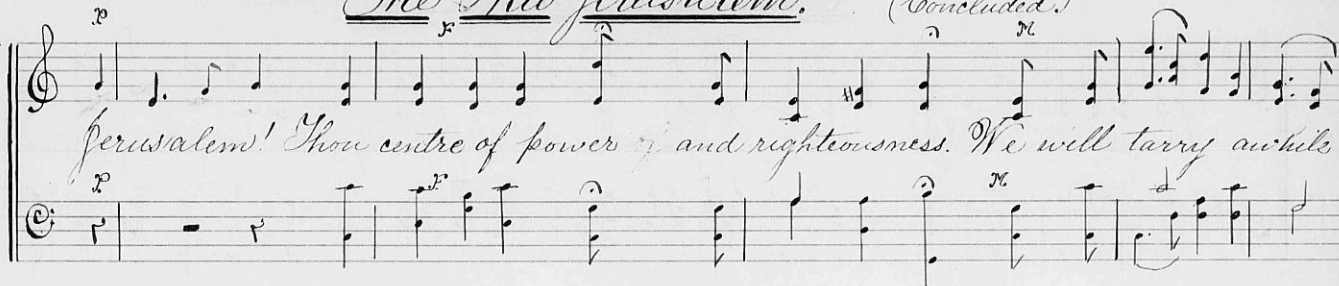 The New Jerusalem. (Concluded.)
P F M
Jerusalem! Thou centre of power and righteousness. We will tarry awhile
P F M